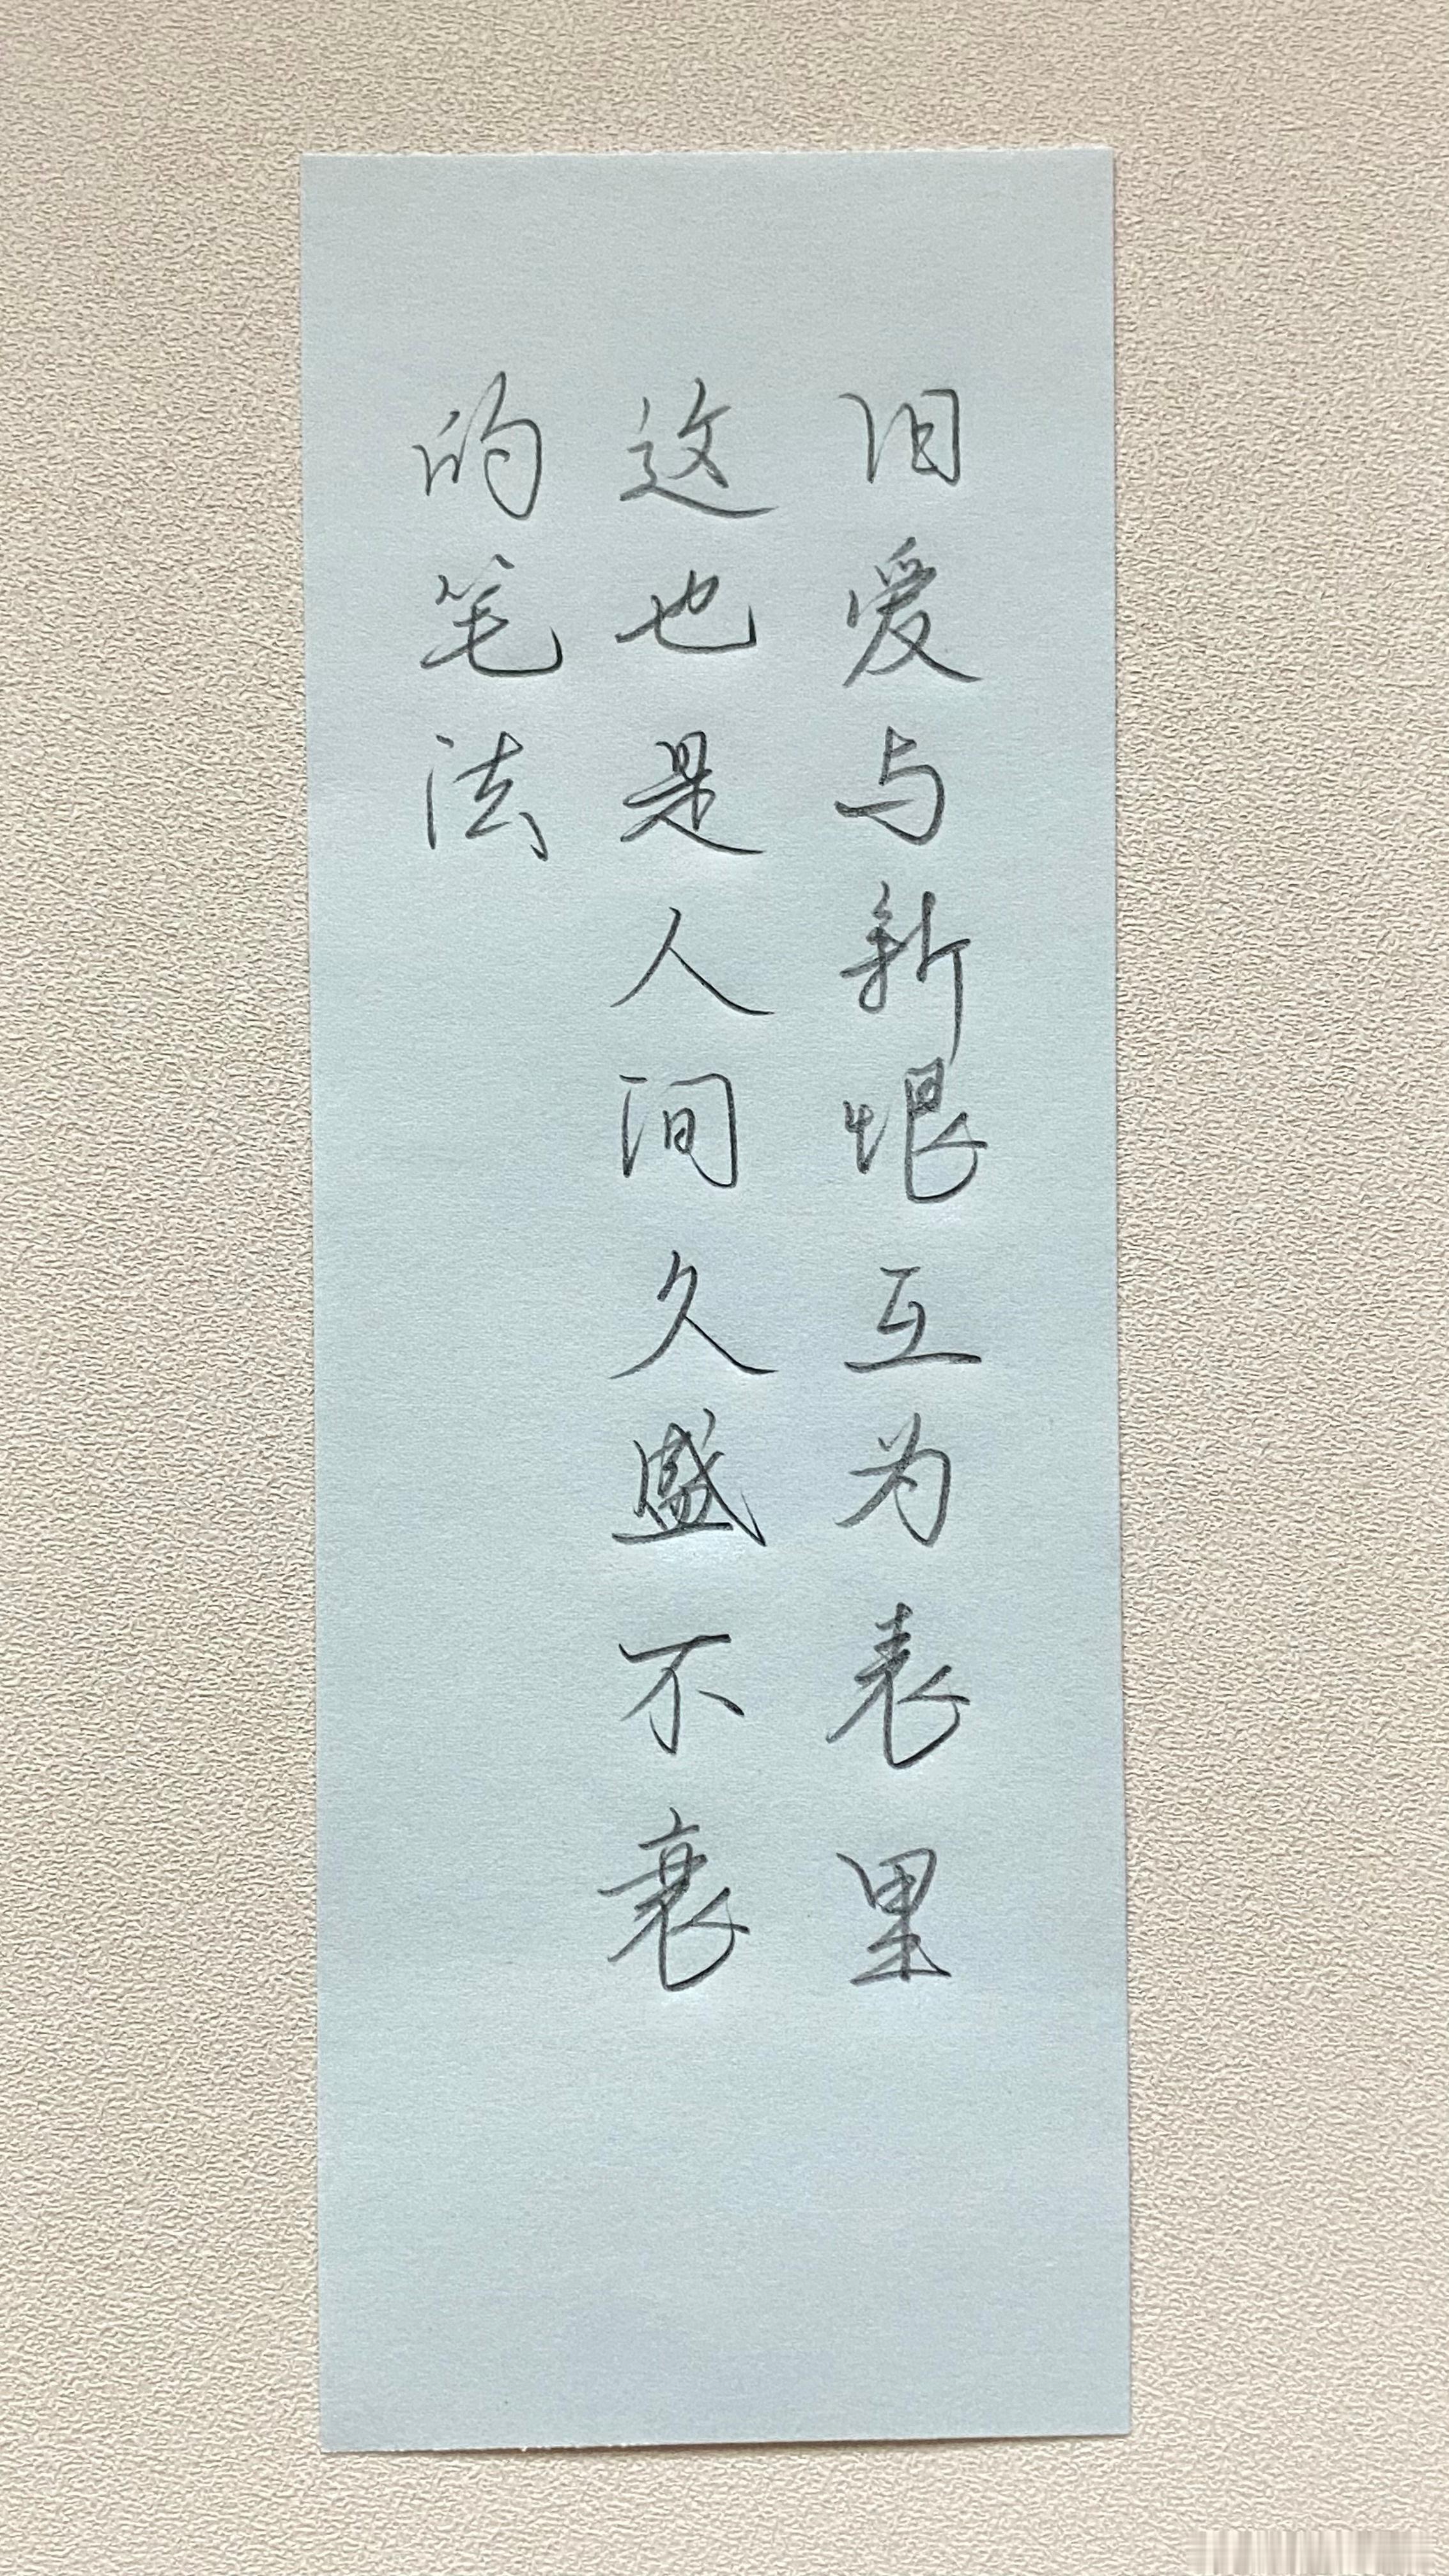 旧爱与新恨互为表里
这也是人间久盛不衰
的笔法